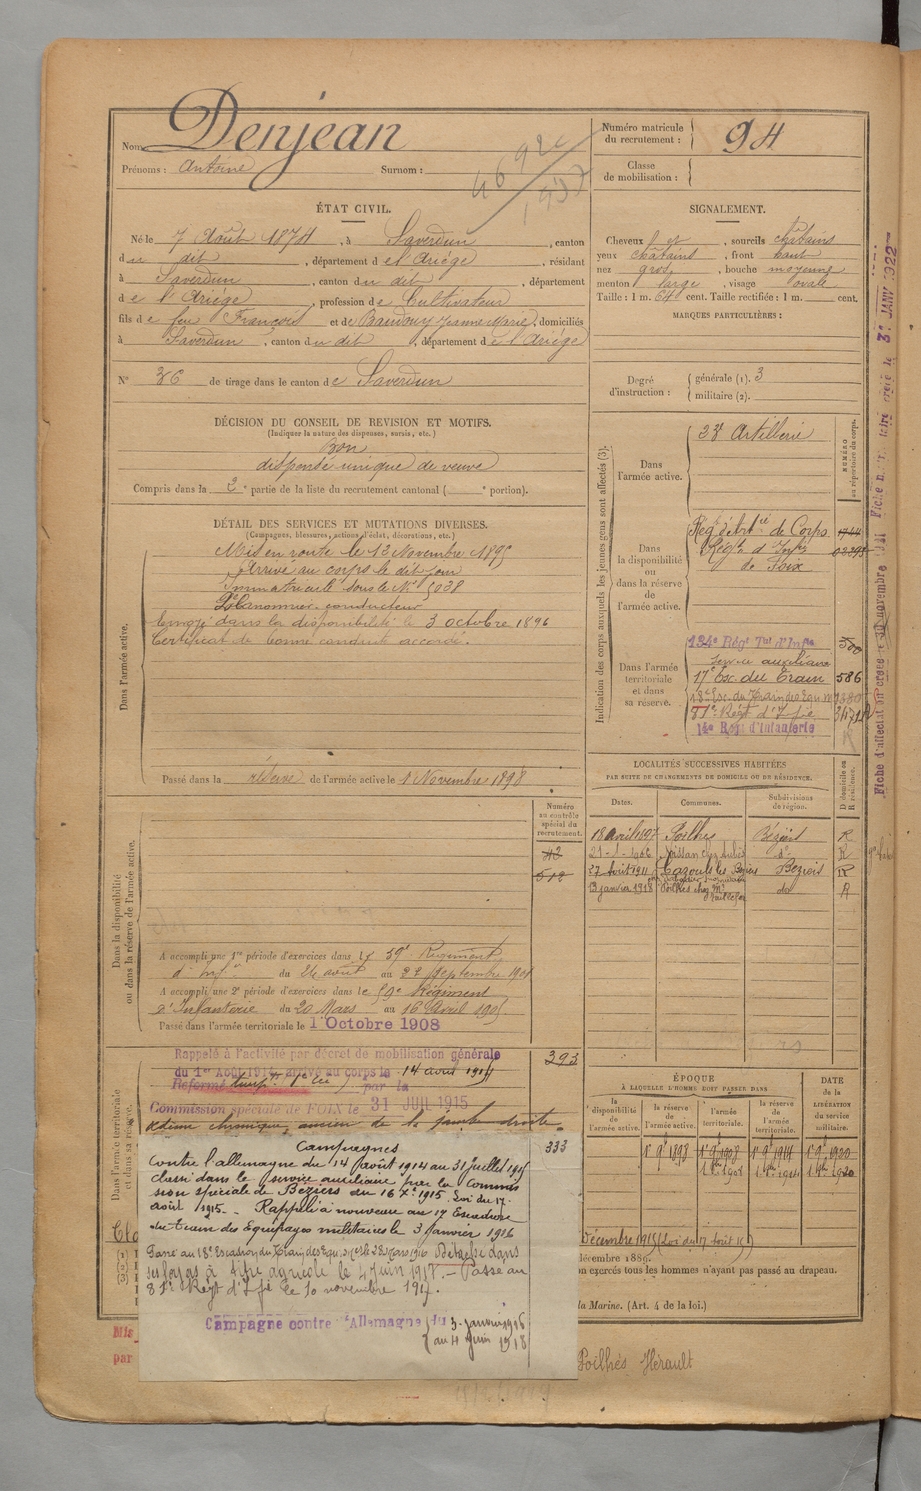 Nom Denjean
Prénoms : Antoine Surnom :
Numéro matricule
du recrutement : 94
Classe
de mobilisation :
ÉTAT CIVIL.
Né le 7 Août 1874, à Saverdun, canton
du dit, département de l'Ariège, résidant
à Saverdun, canton du dit, département
de l'Ariège, profession de Cultivateur
fils de feu François et de Baudouy Jeanne Marie, domiciliés
à Saverdun, canton du dit, département de l'Ariège
N° 36 de tirage dans le canton de Saverdun
SIGNALEMENT.
Cheveux et, sourcils châtains
yeux châtains, front haut
nez gros, bouche moyenne
menton large, visage ovale
Taille : 1 m. 64 cent. Taille rectifiée : 1 m. cent.
MARQUES PARTICULIÈRES :
Degré
d'instruction :
générale (1). 3
militaire (2).
DÉCISION DU CONSEIL DE REVISION ET MOTIFS.
(Indiquer la nature des dispenses, sursis, etc.)
Bon
dispensé unique de veuve
Compris dans la 2e partie de la liste du recrutement cantonal ( e portion).
DÉTAIL DES SERVICES ET MUTATIONS DIVERSES.
(Campagnes, blessures, actions d'éclat, décorations, etc.)
Dans l'armée active.
Mis en route le 13 Novembre 1895
Arrivé au corps le dit jour
Immatriculé sous le N° 5038
2e Canonnier conducteur
Envoyé dans la disponibilité le 3 octobre 1896
Certificat de bonne conduite accordé.
Passé dans la réserve de l'armée active le 1 Novembre 1898
Indication des corps auxquels les jeunes gens sont affectés (3).
NUMÉRO
au répertoire du corps.
Dans
l'armée active.
23e Artillerie
Dans
la disponibilité
ou
dans la réserve
de
l'armée active.
Régt d'Artie de Corps 1744
Régt d'Infie
de Foix
Dans l'armée
territoriale
et dans
sa réserve.
134e Régt Tal d'Infie
Service auxiliaire
17e Esc. du Train 586
18e Esc. du Train des Equ. 1380
81e Régt d'Infie
14e Régt d'Infanterie
LOCALITÉS SUCCESSIVES HABITÉES
PAR SUITE DE CHANGEMENTS DE DOMICILE OU DE RÉSIDENCE.
Dates. Communes. Subdivisions
de région. D domicile ou
R résidence.
18 avril 1897 Poilhes Béziers R
21-1-1906 Nissan d° R
27 Août 1911 Cazouls les Béziers Béziers R
13 janvier 1918 Poilhes chez Mr do R
Dans la disponibilité
ou dans la réserve de l'armée active.
Numéro
au contrôle
spécial du
recrutement.
42
518
A accompli une 1re période d'exercices dans le 59e Régiment
d'Infie du 26 août au 22 Septembre 1901
A accompli une 2e période d'exercices dans le 59e Régiment
d'Infanterie du 20 Mars au 16 Avril 1905
Passé dans l'armée territoriale le 1 Octobre 1908
Dans l'armée territoriale
et dans sa réserve.
Rappelé à l'activité par décret de mobilisation générale 393
du 1er Août 1914, arrivé au corps le 14 août 1914
Réformé par la
Commission spéciale de FOIX le 31 JUIL 1915
œdème chronique, ancien de la jambe droite.
Campagnes 333
Contre l'allemagne du 14 août 1914 au 31 juillet 1915
Classé dans le service auxiliaire par la Commis
sion spéciale de Béziers du 16 Xbre 1915. Loi du 17
août 1915. Rappelé à nouveau au 17 Escadron
du train des Equipages militaires le 3 Janvier 1916
Passé au 18e Escadron du Train des Equ. 1916 Détaché dans
ses foyers à titre agricole le 4 Juin 1917. — Passé au
81e Régt d'Infie le 10 novembre 1917.
Campagne contre l'Allemagne du 3 Janvier 1916
au 4 Juin 1918
ÉPOQUE
À LAQUELLE L'HOMME DOIT PASSER DANS
DATE
de la
LIBÉRATION
du service
militaire.
la
disponibilité
de
l'armée active.
la réserve
de
l'armée active.
l'armée
territoriale.
la réserve
de
l'armée
territoriale.
1er 9bre 1898 1er 9bre 1908 1er 9bre 1914 1er 9bre 1920
décembre 1889.
on exercés tous les hommes n'ayant pas passé au drapeau.
la Marine. (Art. 4 de la loi.)
Mis
par
Poilhés Hérault